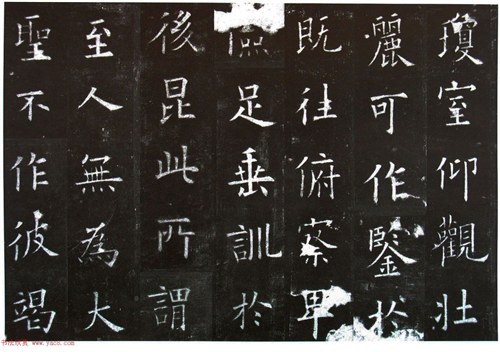 瓊室仰觀壯
麗可作鑒於
既往俯察卑
足垂訓於
後昆此所謂
至人無為大
聖不作彼竭
书法欣赏 www.yac8.com